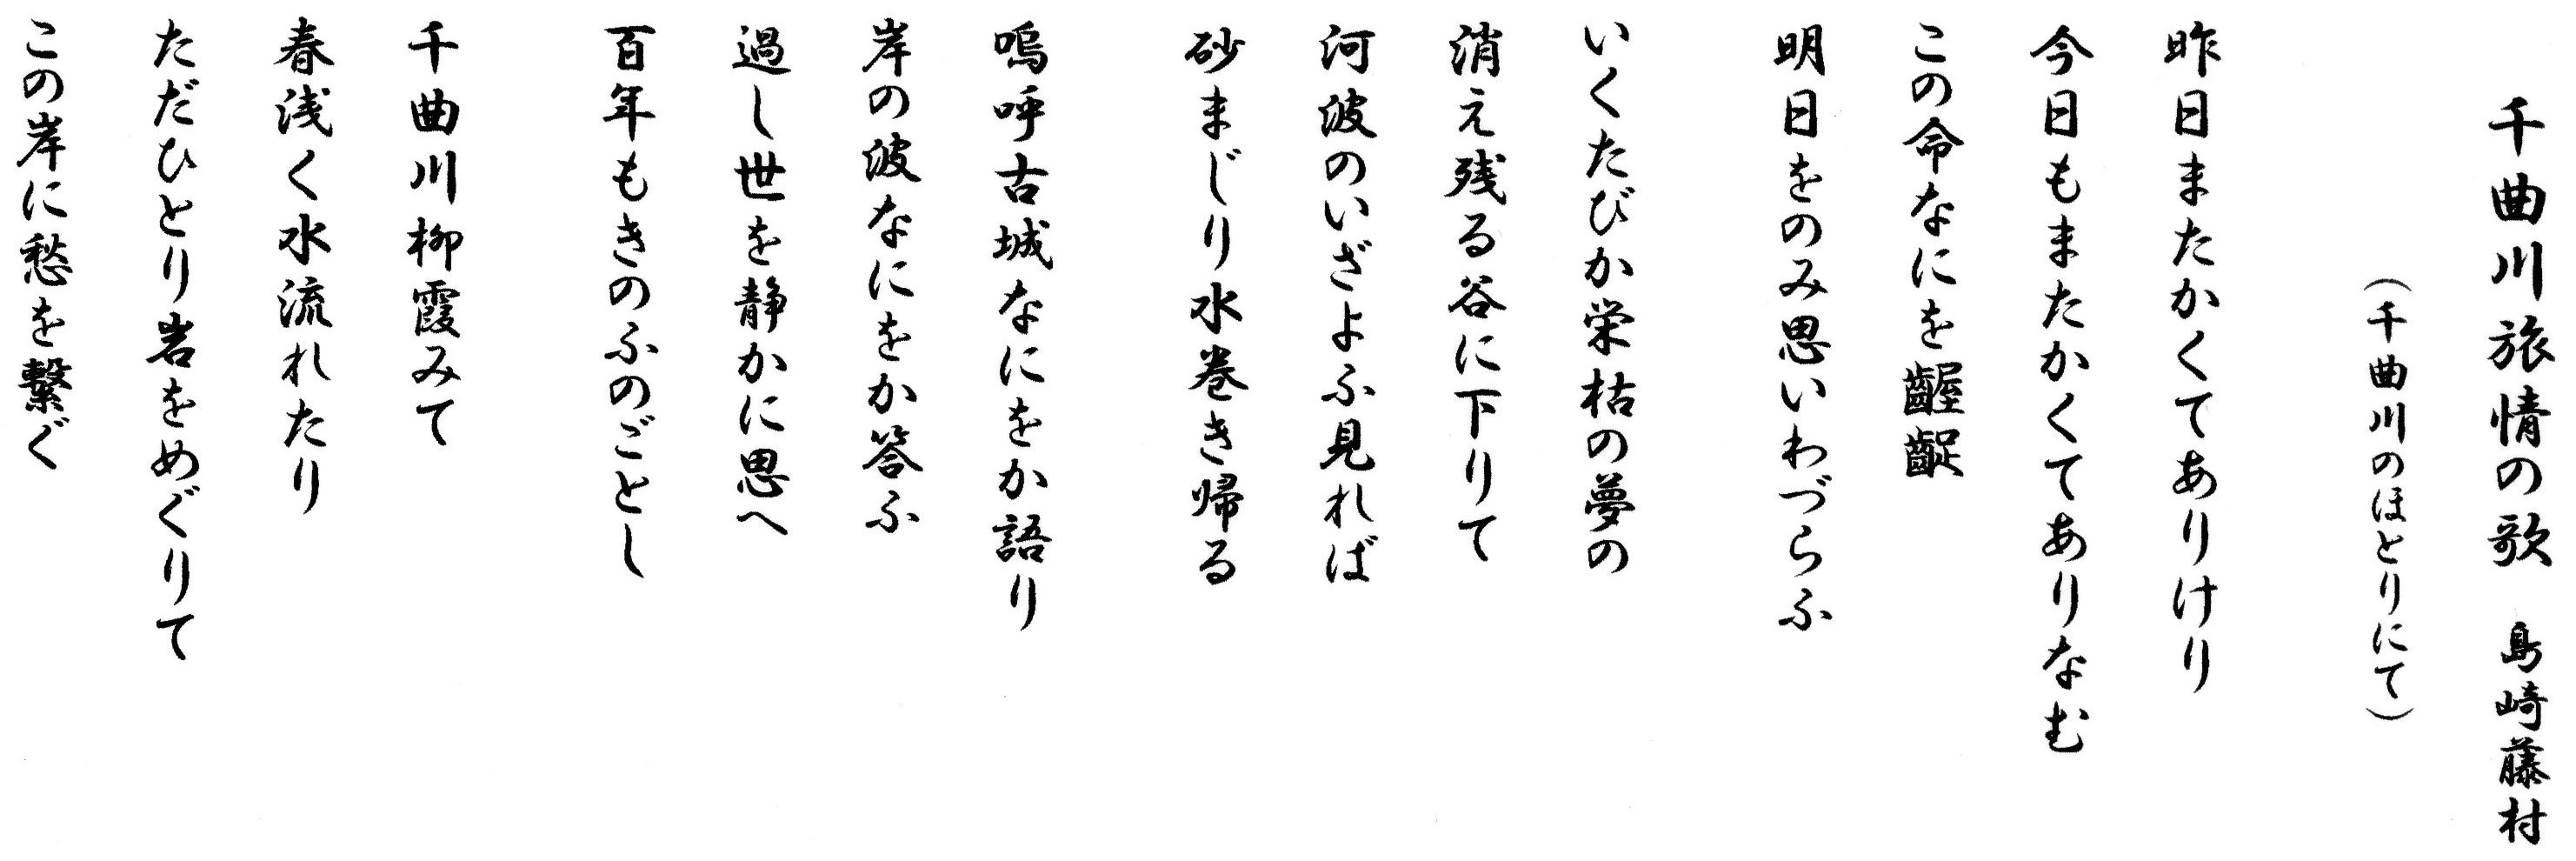 千曲川旅情の歌　島崎藤村
（千曲川のほとりにて）
昨日またかくてありけり
今日もまたかくてありなむ
この命なにを齷齪
明日をのみ思いわづらふ
いくたびか栄枯の夢の
消え残る谷に下りて
河波のいざよふ見れば
砂まじり水巻き帰る
嗚呼古城なにをか語り
岸の波なにをか答ふ
過し世を静かに思へ
百年もきのふのごとし
千曲川柳霞みて
春浅く水流れたり
ただひとり岩をめぐりて
この岸に愁を繋ぐ